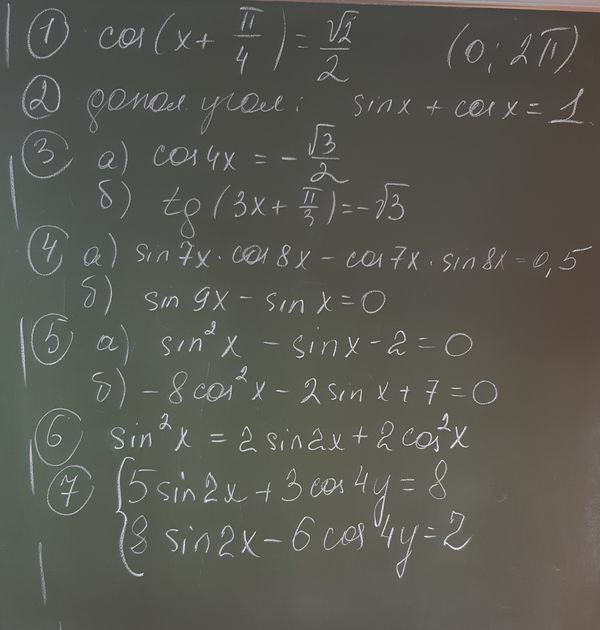 ① cos(x + π/4) = √2/2 (0; 2π)
② допол. угол: sin x + cos x = 1
③ а) cos 4x = -√3/2
б) tg(3x + π/3) = -√3
④ а) sin 7x · cos 8x - cos 7x · sin 8x = 0,5
б) sin 9x - sin x = 0
⑤ а) sin²x - sin x - 2 = 0
б) -8 cos²x - 2 sin x + 7 = 0
⑥ sin²x = 2 sin 2x + 2 cos²x
⑦ { 5 sin 2x + 3 cos 4y = 8
8 sin 2x - 6 cos 4y = 2